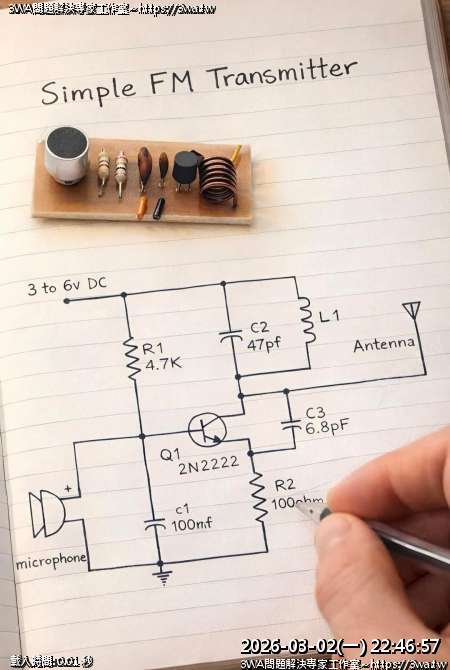 3WA問題解決專家工作室~https://3wa.tw
Simple FM Transmitter
3 to 6v DC
R1
4.7K
C2
47pf
L1
Antenna
C3
6.8pF
Q1
2N2222
R2
100ohm
c1
100nf
+
microphone
載入時間:0.01 秒
2026-03-02(一) 22:46:57
3WA問題解決專家工作室~https://3wa.tw